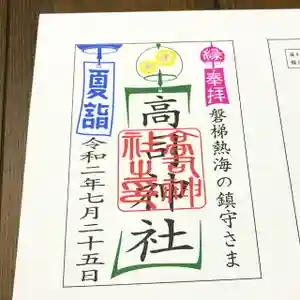 縁
奉拝
磐梯熱海の鎮守さま
高司神社
夏詣
令和二年七月二十五日